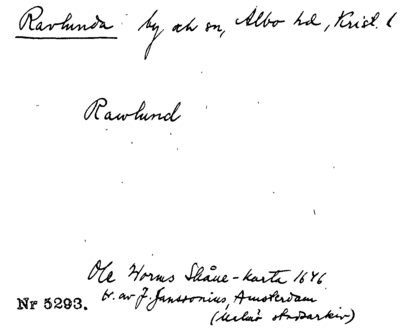 Ravlunda by och sn, Albo hd, Krist. l
Rawlund
Ole Worms Skåne-karta 1646
tr. av J. Janssonius, Amsterdam
Nr 5293.
(Malmö stadsarkiv)